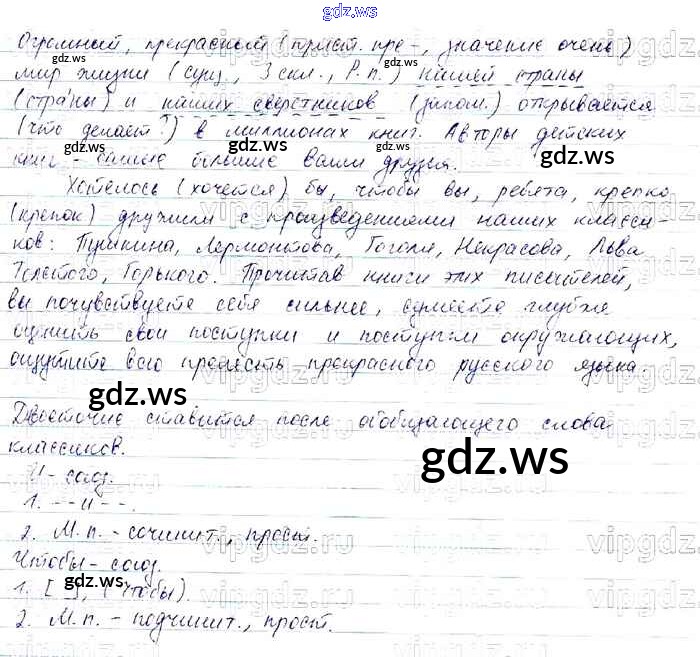 gdz.ws
Огромный, прекрасный (прист. пре-, значение очень)
мир жизни (сущ., 3 скл., Р.п.) нашей страны
(стра́ны) и наших сверстников (запом.) открывается
(что делает?) в миллионах книг. Авторы детских
книг - самые большие ваши друзья.
Хотелось (хочется) бы, чтобы вы, ребята, крепко
(крепок) дружили с произведениями наших класси-
ков: Пушкина, Лермонтова, Гоголя, Некрасова, Льва
Толстого, Горького. Прочитав книги этих писателей,
вы почувствуете себя сильнее, сумеете глубже
оценить свои поступки и поступки окружающих,
ощутите всю прелесть прекрасного русского языка.
Двоеточие ставится после обобщающего слова
классиков.
И - союз.
1. - - и - -.
2. М.п. - сочинит., прост.
Чтобы - союз.
1. [ ], (чтобы).
2. М.п. - подчинит., прост.
gdz.ws
gdz.ws
gdz.ws
gdz.ws
gdz.ws
gdz.ws
vipgdz.ru